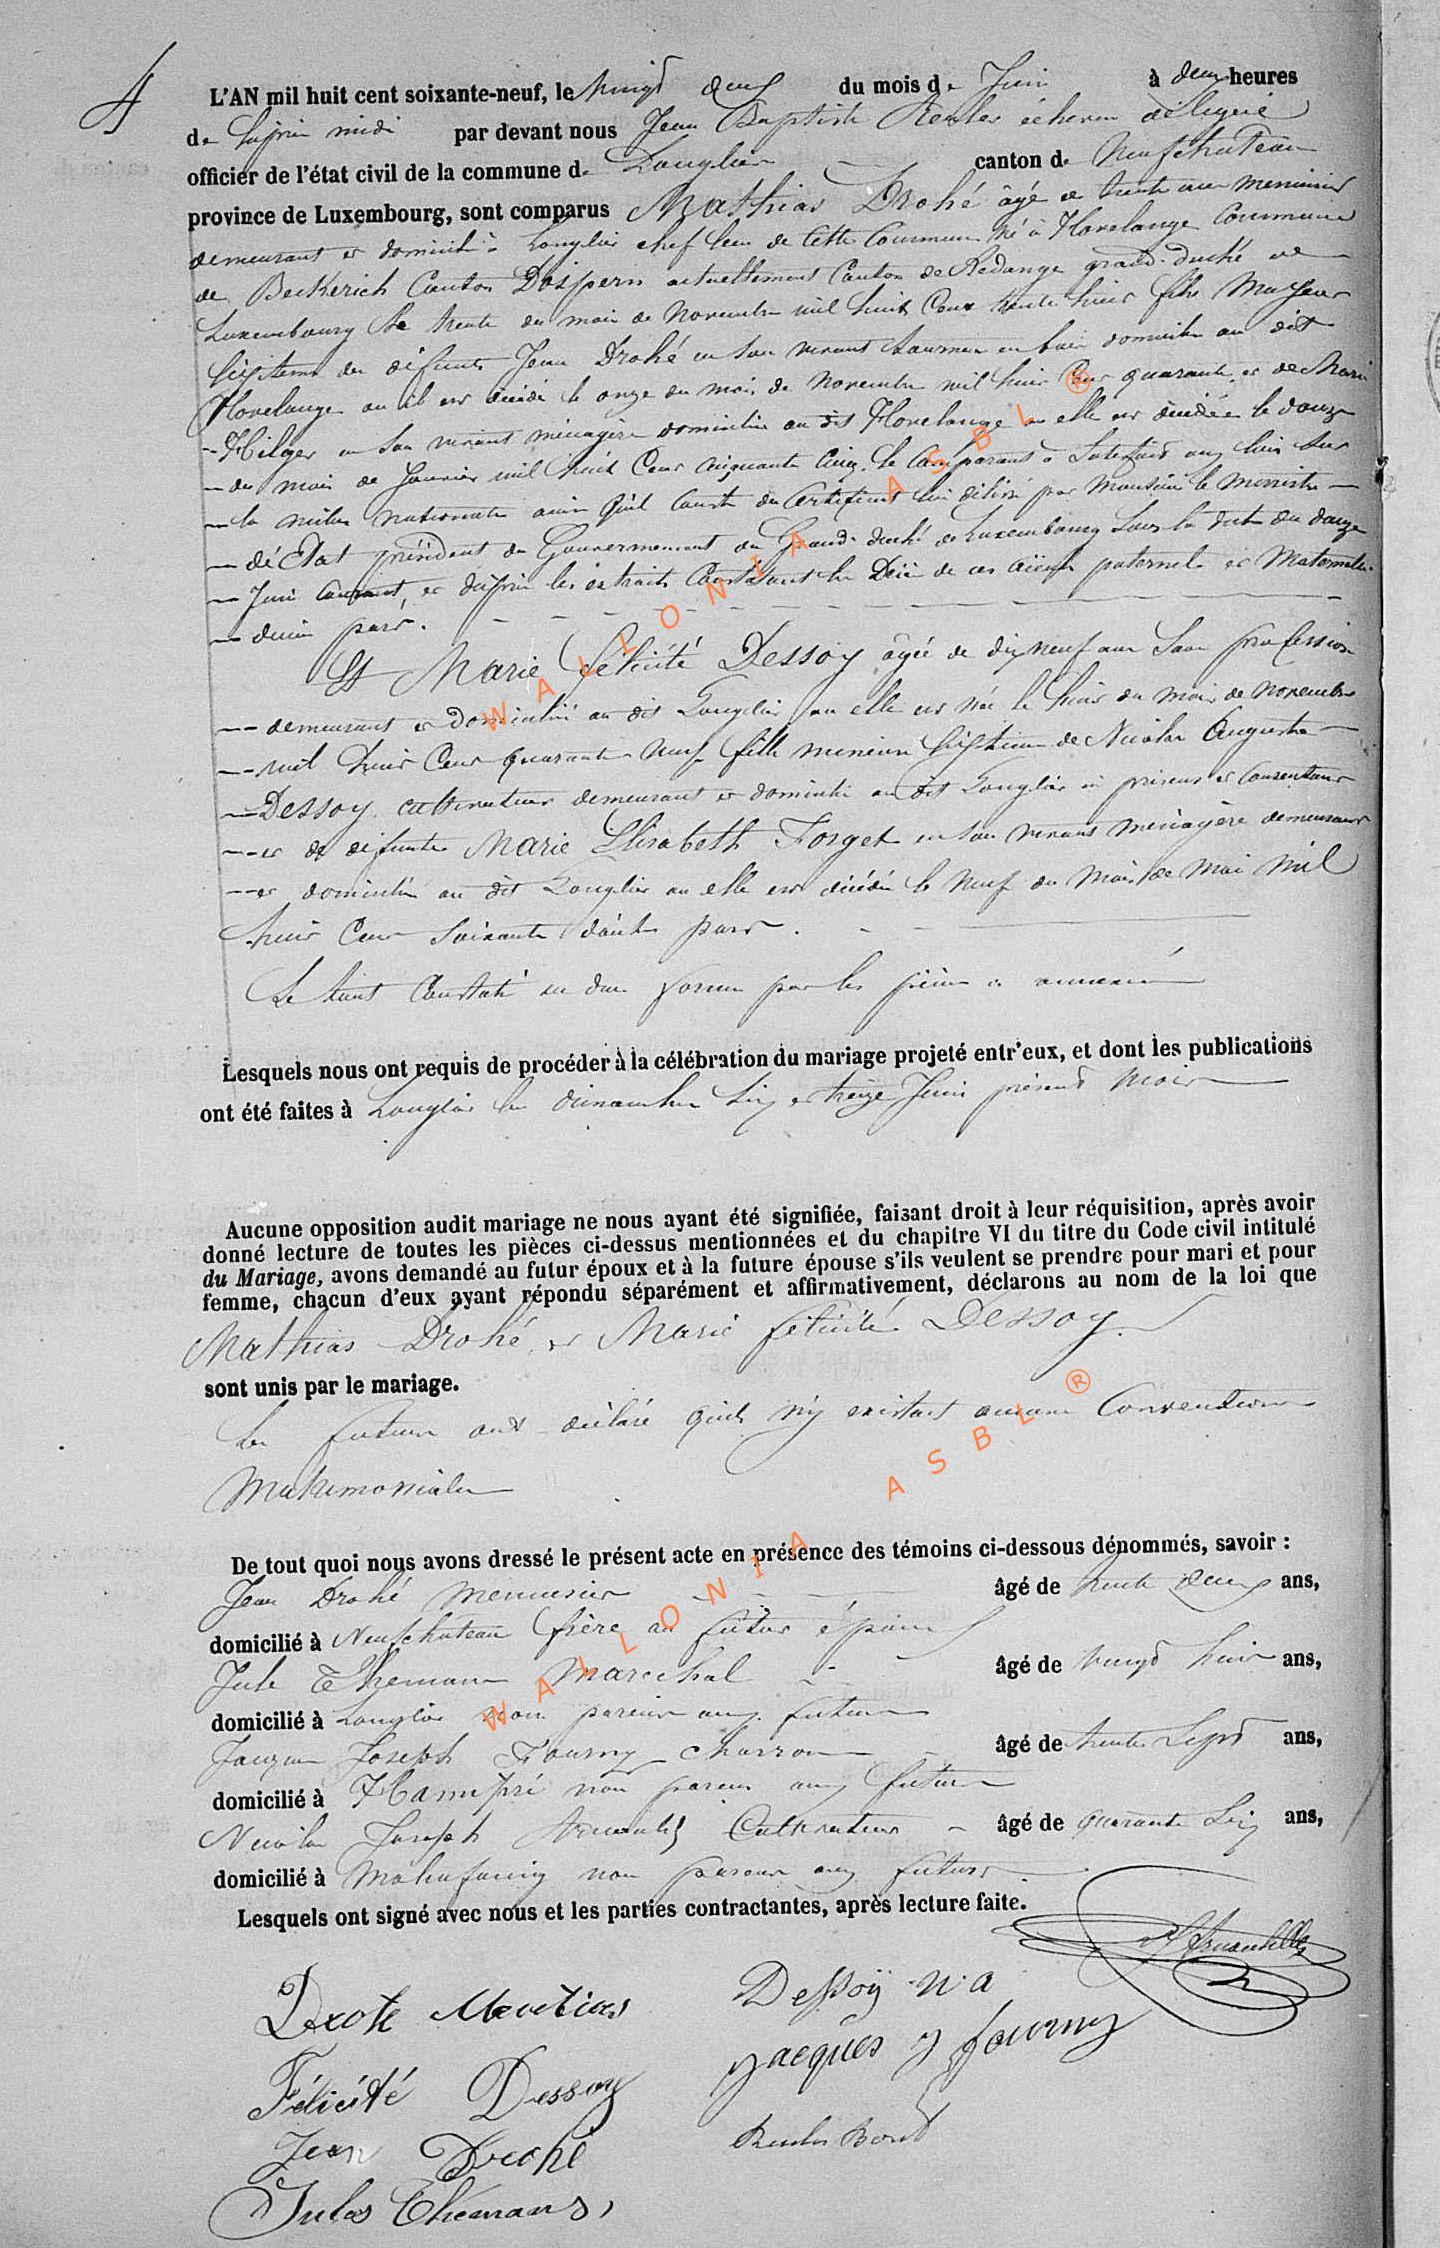 4
L'AN mil huit cent soixante-neuf, le vingt deux du mois de Juin à deux heures
de l'après midi par devant nous Jean Baptiste échevin délégué
officier de l'état civil de la commune de Longlier canton de Neufchateau
province de Luxembourg, sont comparus Mathias Drohé âgé de trente ans menuisier
demeurant et domicilié à Longlier chef lieu de cette Commune né à Hovelange Commune
de Beckerich Canton D'ospern actuellement Canton de Redange grand-duché de
Luxembourg le trente du mois de Novembre mil huit Cent trente huit fils Majeur
légitime des défunts Jean Drohé en son vivant tourneur en bois domicilié au dit
Hovelange où il est décédé le onze du mois de Novembre mil huit Cent quarante et de Marie
Hilger en son vivant ménagère domiciliée au dit Hovelange où elle est décédée le douze
du mois de Janvier mil huit Cent cinquante Cinq. le Comparant a satisfait aux lois sur
la milice nationale ainsi qu'il Conste du Certificat lui délivré par Monsieur le Ministre
d'Etat président du Gouvernement du Grand-duché de Luxembourg sous la date du douze
Juin Courant, et d'après les extraits Constatant le Décès de ces aïeux paternels et Maternels
d'une part.
Et Marie félicité Dessoy âgée de dix neuf ans sans profession
demeurant et domiciliée au dit Longlier où elle est née le huit du mois de novembre
mil huit Cent quarante neuf fille mineure légitime de Nicolas Auguste
Dessoy cultivateur demeurant et domicilié au dit Longlier ici présent et Consentant
et de défunte Marie Elisabeth Forget en son vivant ménagère demeurant
et domiciliée au dit Longlier où elle est décédée le neuf du mois de Mai mil
huit Cent soixante d'autre part.
Le tout Constaté en due forme par les pièces ci annexées
Lesquels nous ont requis de procéder à la célébration du mariage projeté entr'eux, et dont les publications
ont été faites à Longlier les dimanches six et treize Juin présent Mois
Aucune opposition audit mariage ne nous ayant été signifiée, faisant droit à leur réquisition, après avoir
donné lecture de toutes les pièces ci-dessus mentionnées et du chapitre VI du titre du Code civil intitulé
du Mariage, avons demandé au futur époux et à la future épouse s'ils veulent se prendre pour mari et pour
femme, chacun d'eux ayant répondu séparément et affirmativement, déclarons au nom de la loi que
Mathias Drohé, et Marie félicité Dessoy.
sont unis par le mariage.
Les futurs ont déclaré qu'ils n'y existait aucune Conventions
Matrimoniales
De tout quoi nous avons dressé le présent acte en présence des témoins ci-dessous dénommés, savoir :
Jean Drohé Menuisier âgé de trente deux ans,
domicilié à Neufchateau frère au futur époux
Jule Themans Marechal âgé de vingt huit ans,
domicilié à Longlier non parent aux futurs
Jacques Joseph Fourny charron âgé de trente sept ans,
domicilié à Hamipré non parent aux futurs
Nicolas Joseph Cultivateur âgé de quarante six ans,
domicilié à Molinfaing non parent aux futurs
Lesquels ont signé avec nous et les parties contractantes, après lecture faite.
Drohé Mathias
Dessoÿ n a
Jacques J fourny
Félicité Dessoy
Jean Drohé
Jules Themans,
WALLONIA ASBL ®
WALLONIA ASBL ®